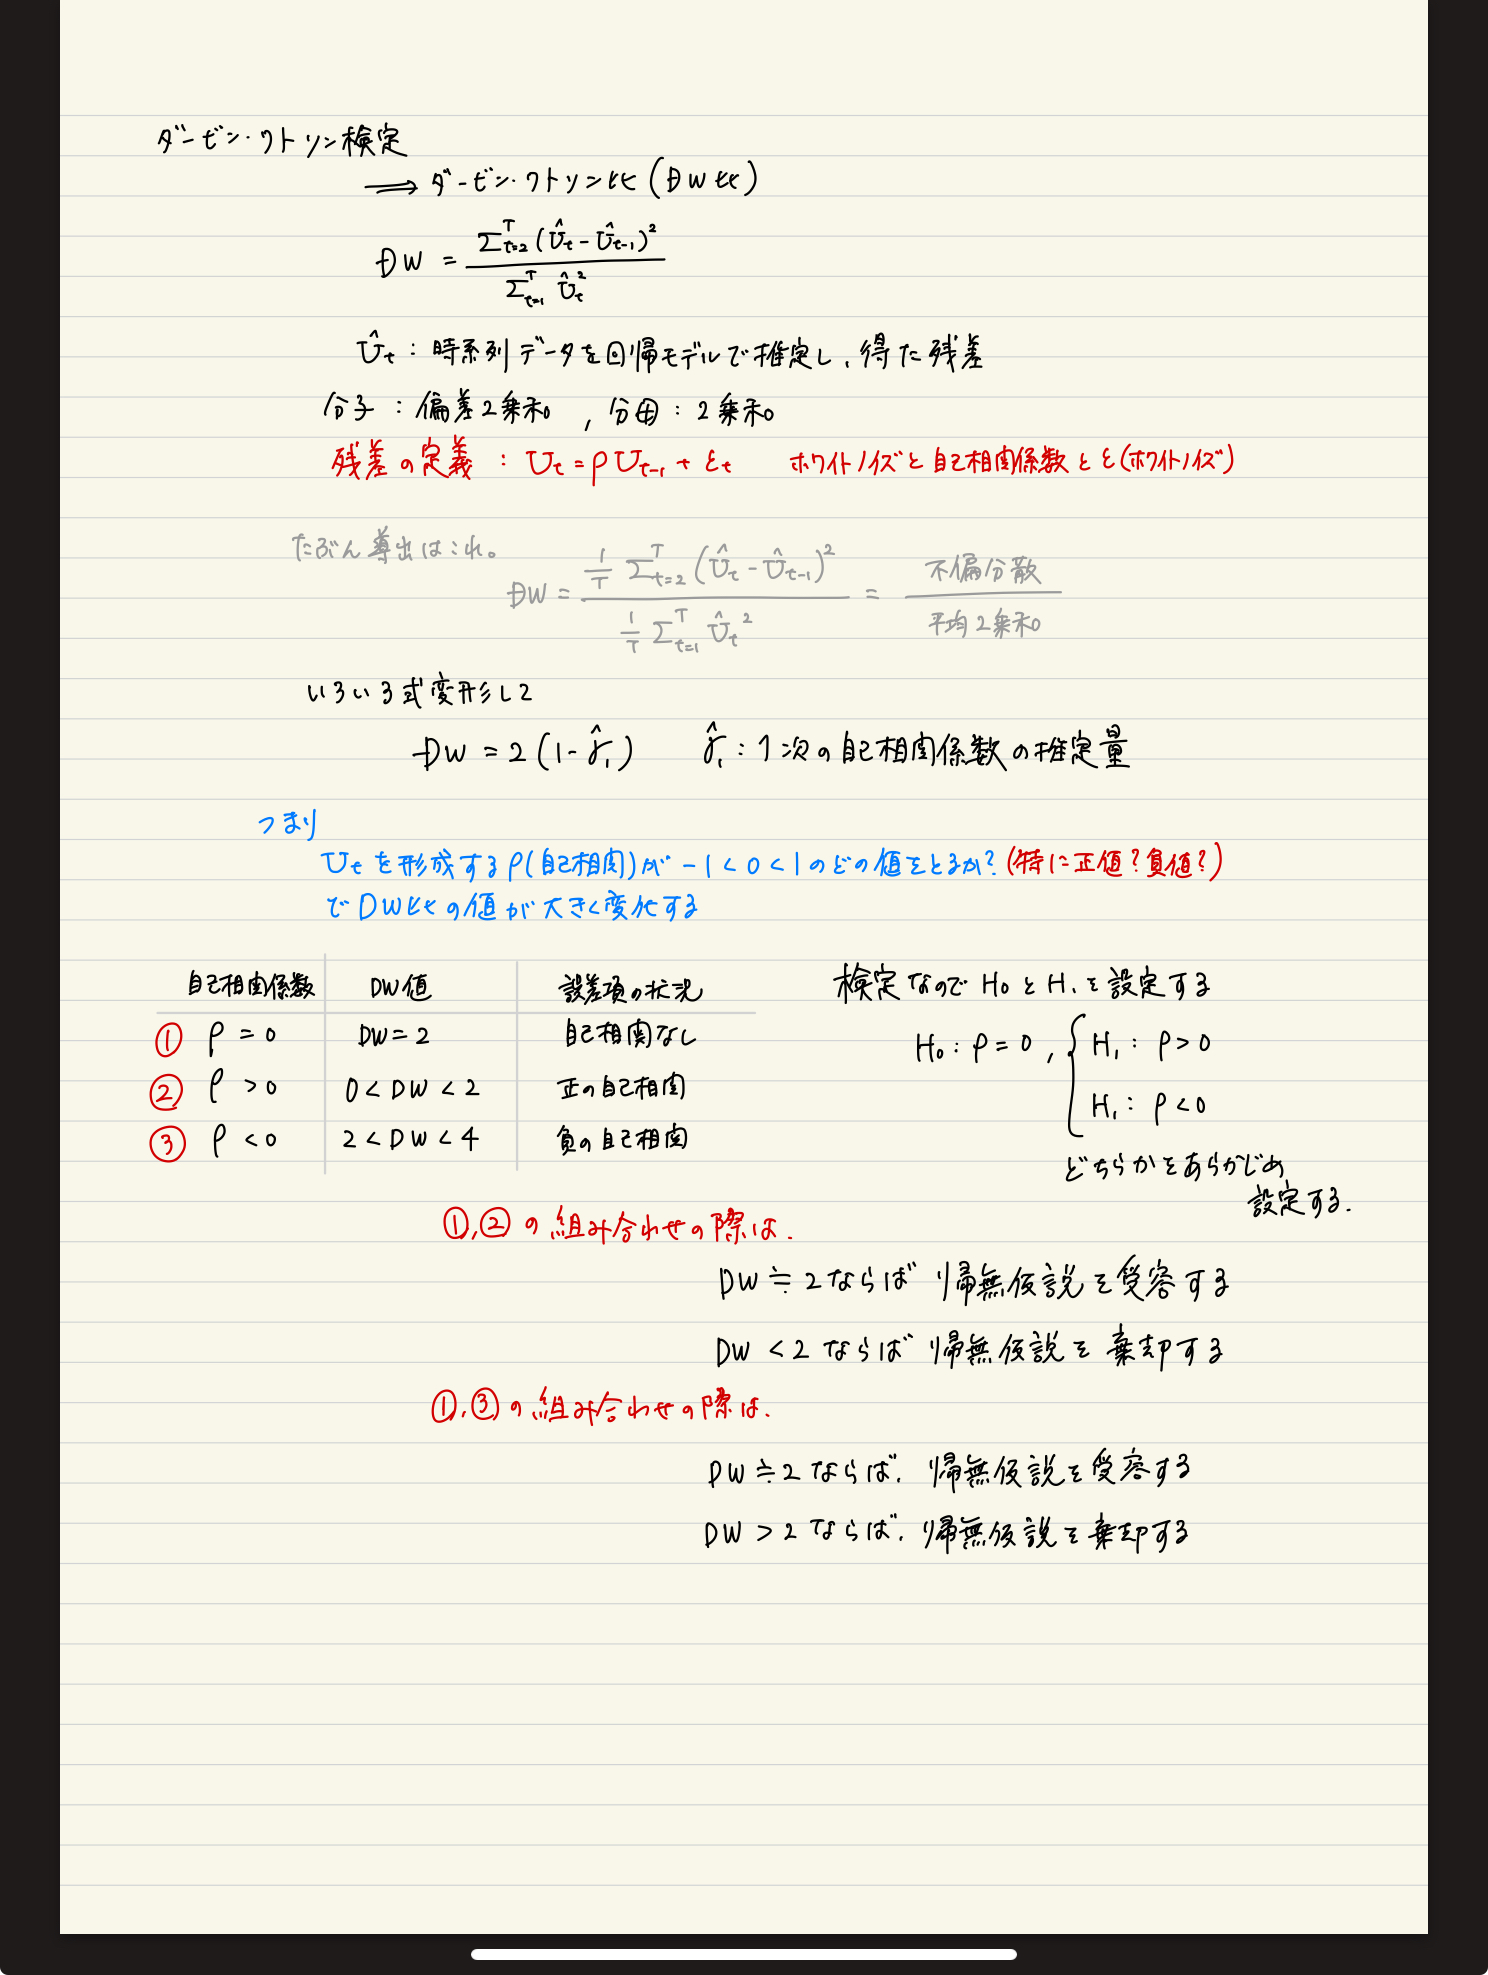 ダービン・ワトソン検定
⟹ ダービン・ワトソン比(DW比)
DW = Σ_{t=2}^{T}(Û_t - Û_{t-1})² / Σ_{t=1}^{T} Û_t²
Û_t : 時系列データを回帰モデルで推定し、得た残差
分子 : 偏差2乗和。, 分母 : 2乗和。
残差の定義 : U_t = ρU_{t-1} + ε_t ホワイトノイズと自己相関係数とε(ホワイトノイズ)
たぶん導出はこれ。
DW = \frac{1}{T} Σ_{t=2}^{T}(Û_t - Û_{t-1})² / \frac{1}{T} Σ_{t=1}^{T} Û_t² = 不偏分散 / 平均2乗和。
いろいろ式変形して
DW = 2(1-γ̂₁) γ̂₁ : 1次の自己相関係数の推定量
つまり
U_tを形成するρ(自己相関)が -1<0<1のどの値をとるか?(特に正値?負値?)
でDW比の値が大きく変化する
自己相関係数 DW値 誤差項の状況
① ρ = 0 DW = 2 自己相関なし
② ρ > 0 0 < DW < 2 正の自己相関
③ ρ < 0 2 < DW < 4 負の自己相関
検定なのでH₀とH₁を設定する
H₀ : ρ = 0 , { H₁ : ρ > 0
H₁ : ρ < 0
どちらかをあらかじめ
設定する.
①,②の組み合わせの際は.
DW ≒ 2ならば 帰無仮説を受容する
DW < 2ならば 帰無仮説を棄却する
①,③の組み合わせの際は.
DW ≒ 2ならば. 帰無仮説を受容する
DW > 2ならば. 帰無仮説を棄却する